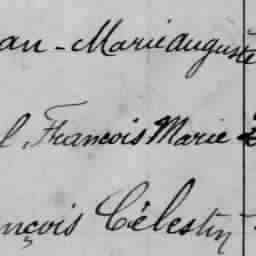 an - Marie auguste
l François Marie
nçois Célestin